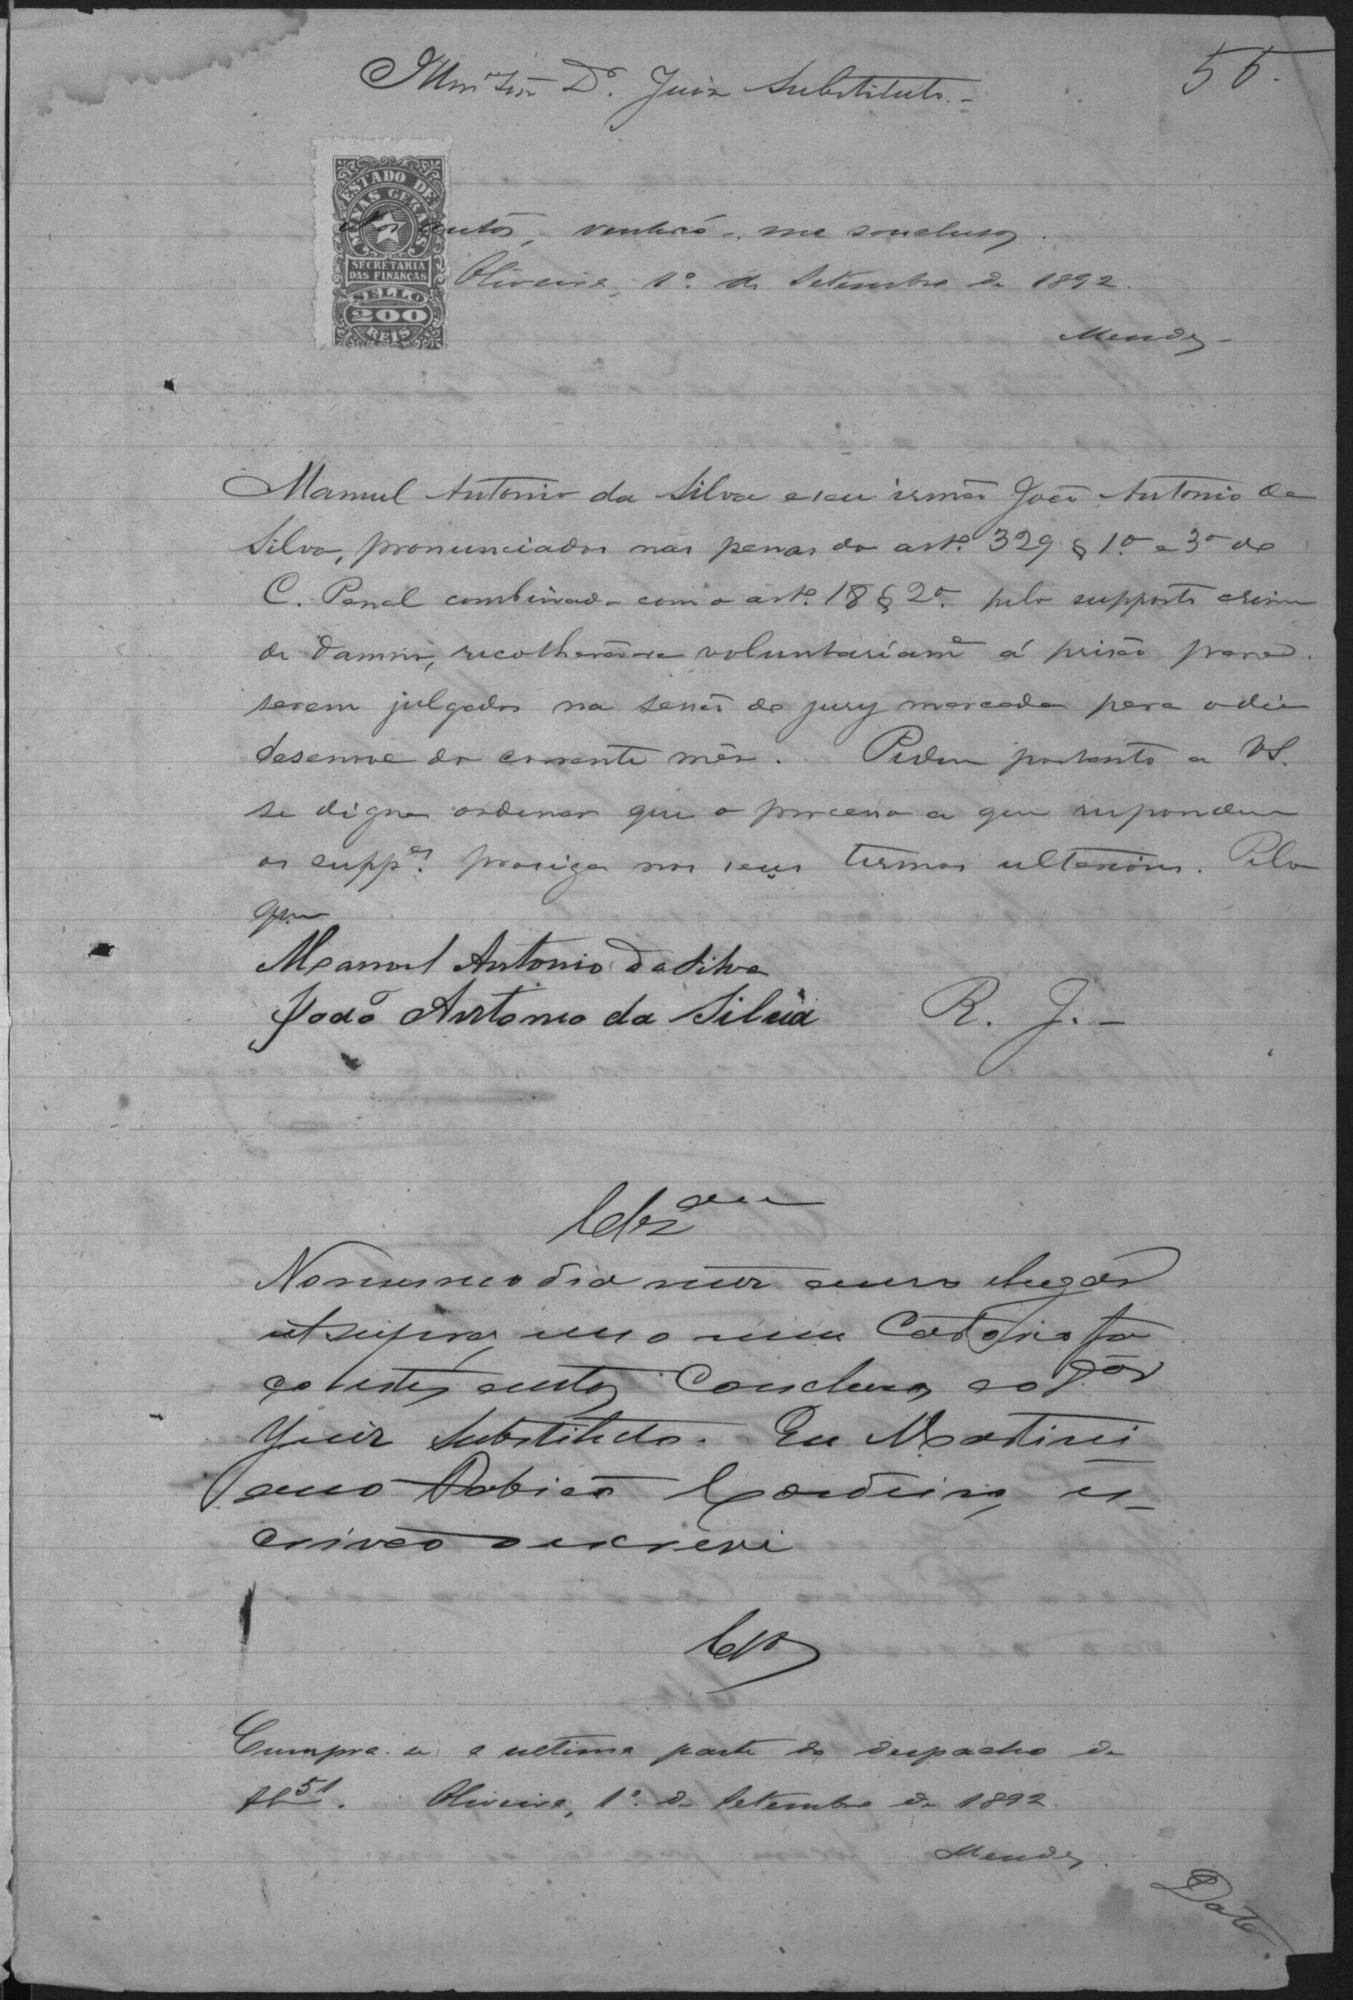 Illm Snr Dr. Juiz Substituto.
55.
ESTADO DE
MINAS GERAES
SECRETARIA
DAS FINANÇAS
SELLO
200
REIS
Nos autos, venhão-me conclusos.
Oliveira, 1º. de Setembro de 1892.
Mendes
Manuel Antonio da Silva e seu irmão João Antonio da
Silva, pronunciados nas penas do artº. 329 § 1º e 3º do
C. Penal combinado com o artº. 18 § 2º. pelo supposto crime
de damno, recolherão-se voluntariamte á prisão para
serem julgados na sessão do jury marcada para o dia
desenove do corrente mês. Pedem portanto a VS.
se digne ordenar que o processo a que respondem
os suppes. prosiga nos seus termos ulteriores. Pelo
que
Manoel Antonio da Silva
João Antonio da Silvia R. J.
Clzam
No mesmo dia mez anno e lugar
ut supra, em o meu Cartorio fa
ço estes autos Conclusos ao Dor
Juiz Substituto. Eu Martini
ano Cordeiro, es-
crivão o escrevi
Clz
Cumpra-se a ultima parte do despacho de
fl 51. Oliveira, 1º. de Setembro de 1892.
Mendes.
Data.